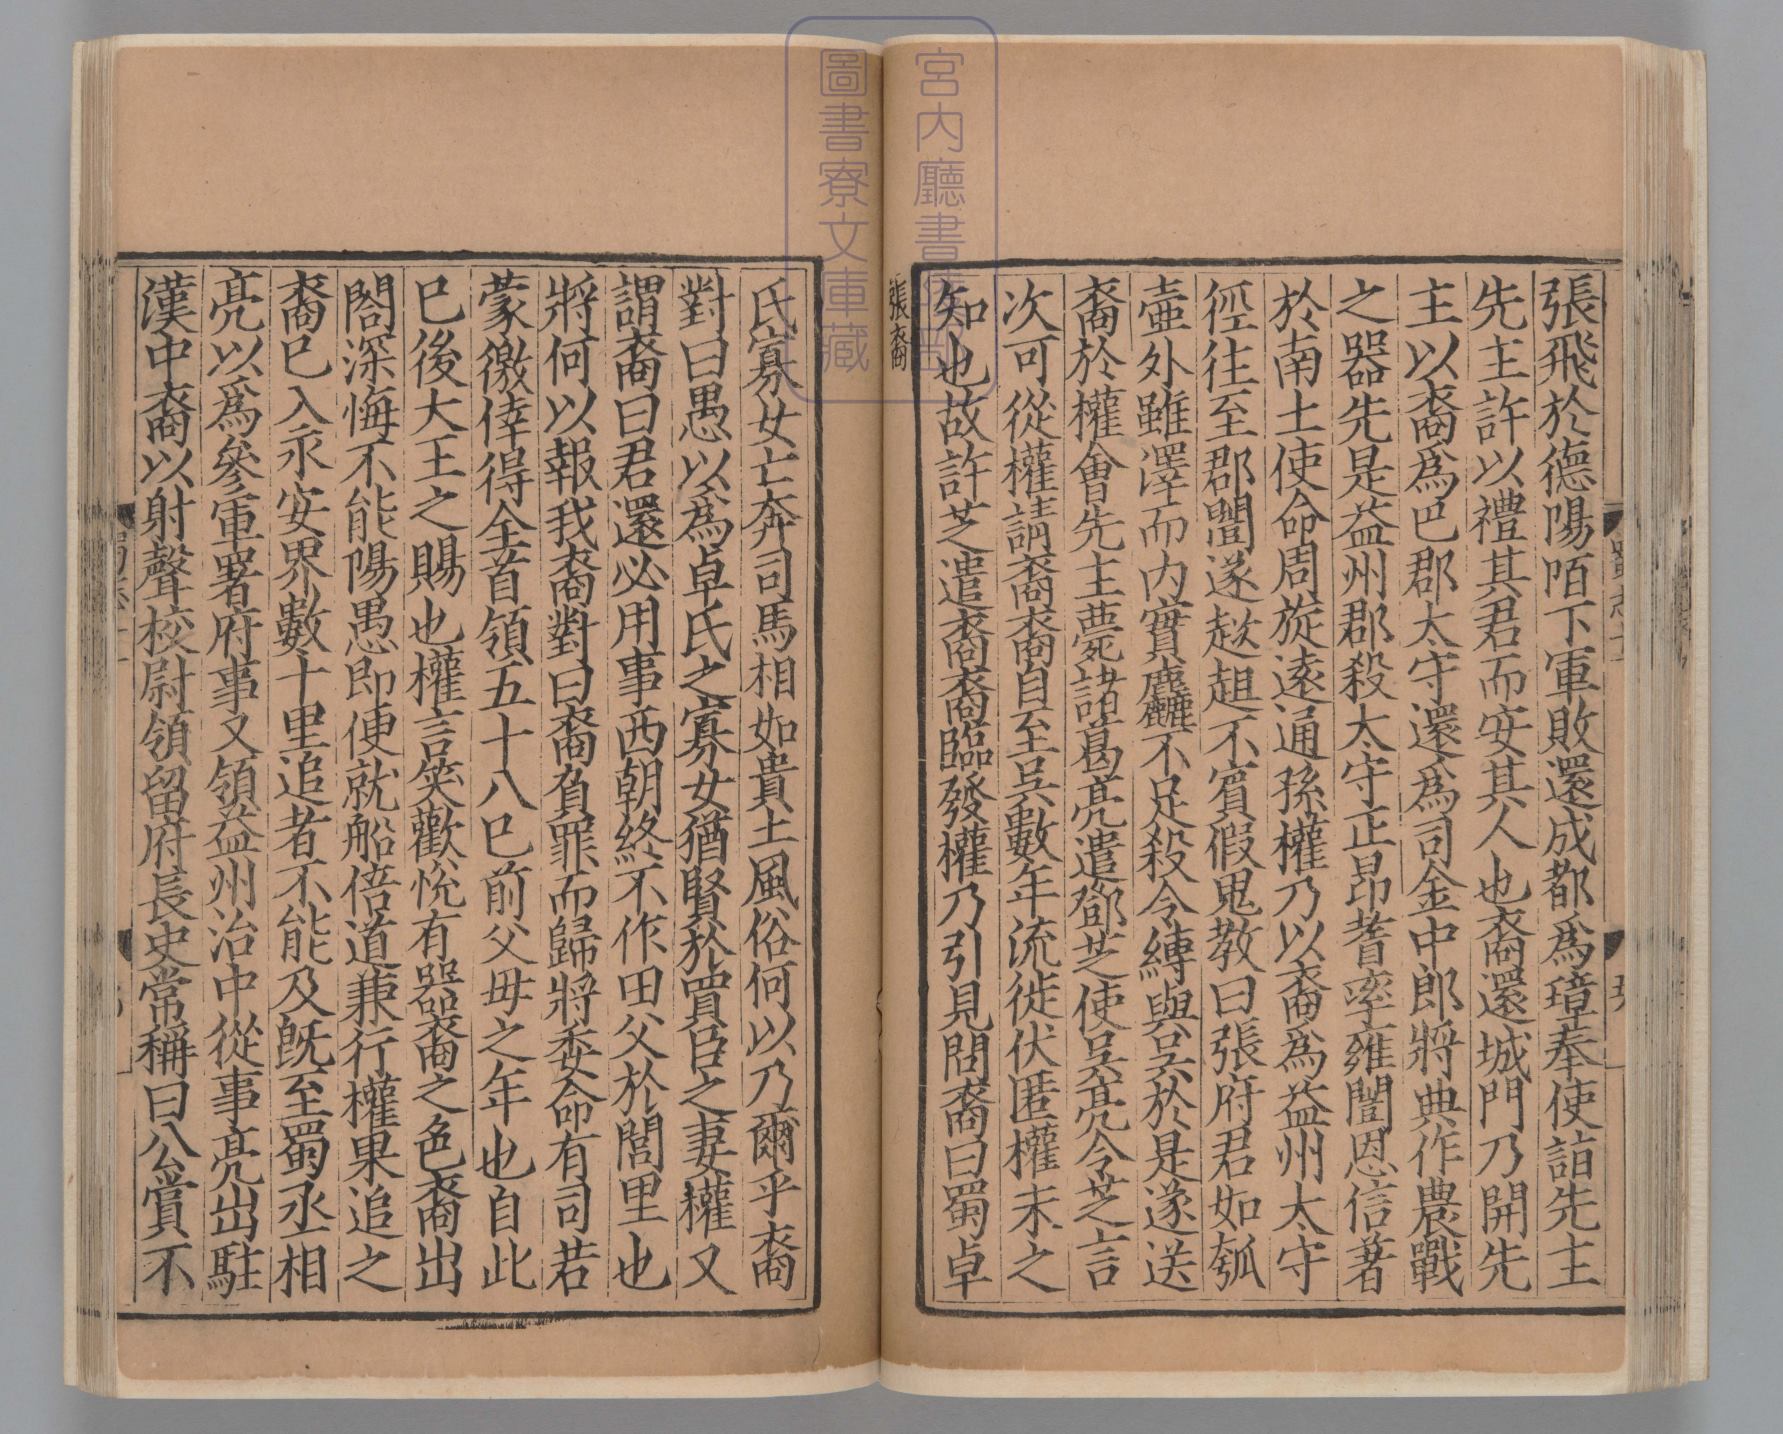 張飛於德陽陌下軍敗還成都爲璋奉使詣先主
先主許以禮其君而安其人也裔還城門乃開先
主以裔爲巴郡太守還爲司金中郎將典作農戰
之器先是益州郡殺太守正昂耆率雍闓恩信著
於南土使命周旋遠通孫權乃以裔爲益州太守
徑往至郡闓遂趑趄不賓假鬼教曰張府君如瓠
壺外雖澤而内實麤不足殺令縛與吳於是遂送
裔於權會先主薨諸葛亮遣鄧芝使吳亮令芝言
次可從權請裔裔自至吳數年流徙伏匿權未之
知也故許芝遣裔裔臨發權乃引見問裔曰蜀卓
張裔
氏寡女亡奔司馬相如貴土風俗何以乃爾乎裔
對曰愚以爲卓氏之寡女猶賢於買臣之妻權又
謂裔曰君還必用事西朝終不作田父於閭里也
將何以報我裔對曰裔負罪而歸將委命有司若
蒙徼倖得全首領五十八巳前父母之年也自此
巳後大王之賜也權言笑歡悅有器裔之色裔出
閤深悔不能陽愚即便就船倍道兼行權果追之
裔巳入永安界數十里追者不能及旣至蜀丞相
亮以爲參軍署府事又領益州治中從事亮出駐
漢中裔以射聲校尉領留府長史常稱曰公賞不
宮内廳書
圖書寮文庫藏